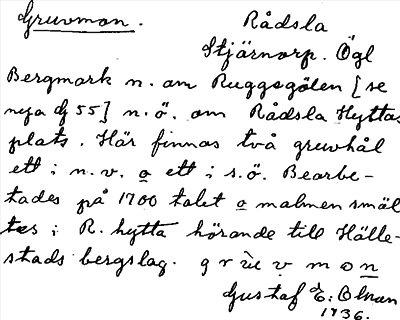 Gruvmon. Rådsla
Stjärnorp. Ögl
Bergmark n. om Ruggsgölen [se
nya Ej 55] n.ö. om Rådsla Hyttas
plats. Här finnas två gruvhål
ett i n.v. o ett i s.ö. Bearbe-
tades på 1700 talet o malmen smäl
tes i R. hytta hörande till Hälle-
stads bergslag. g r ù v m o n
Gustaf E: Olson
1736.